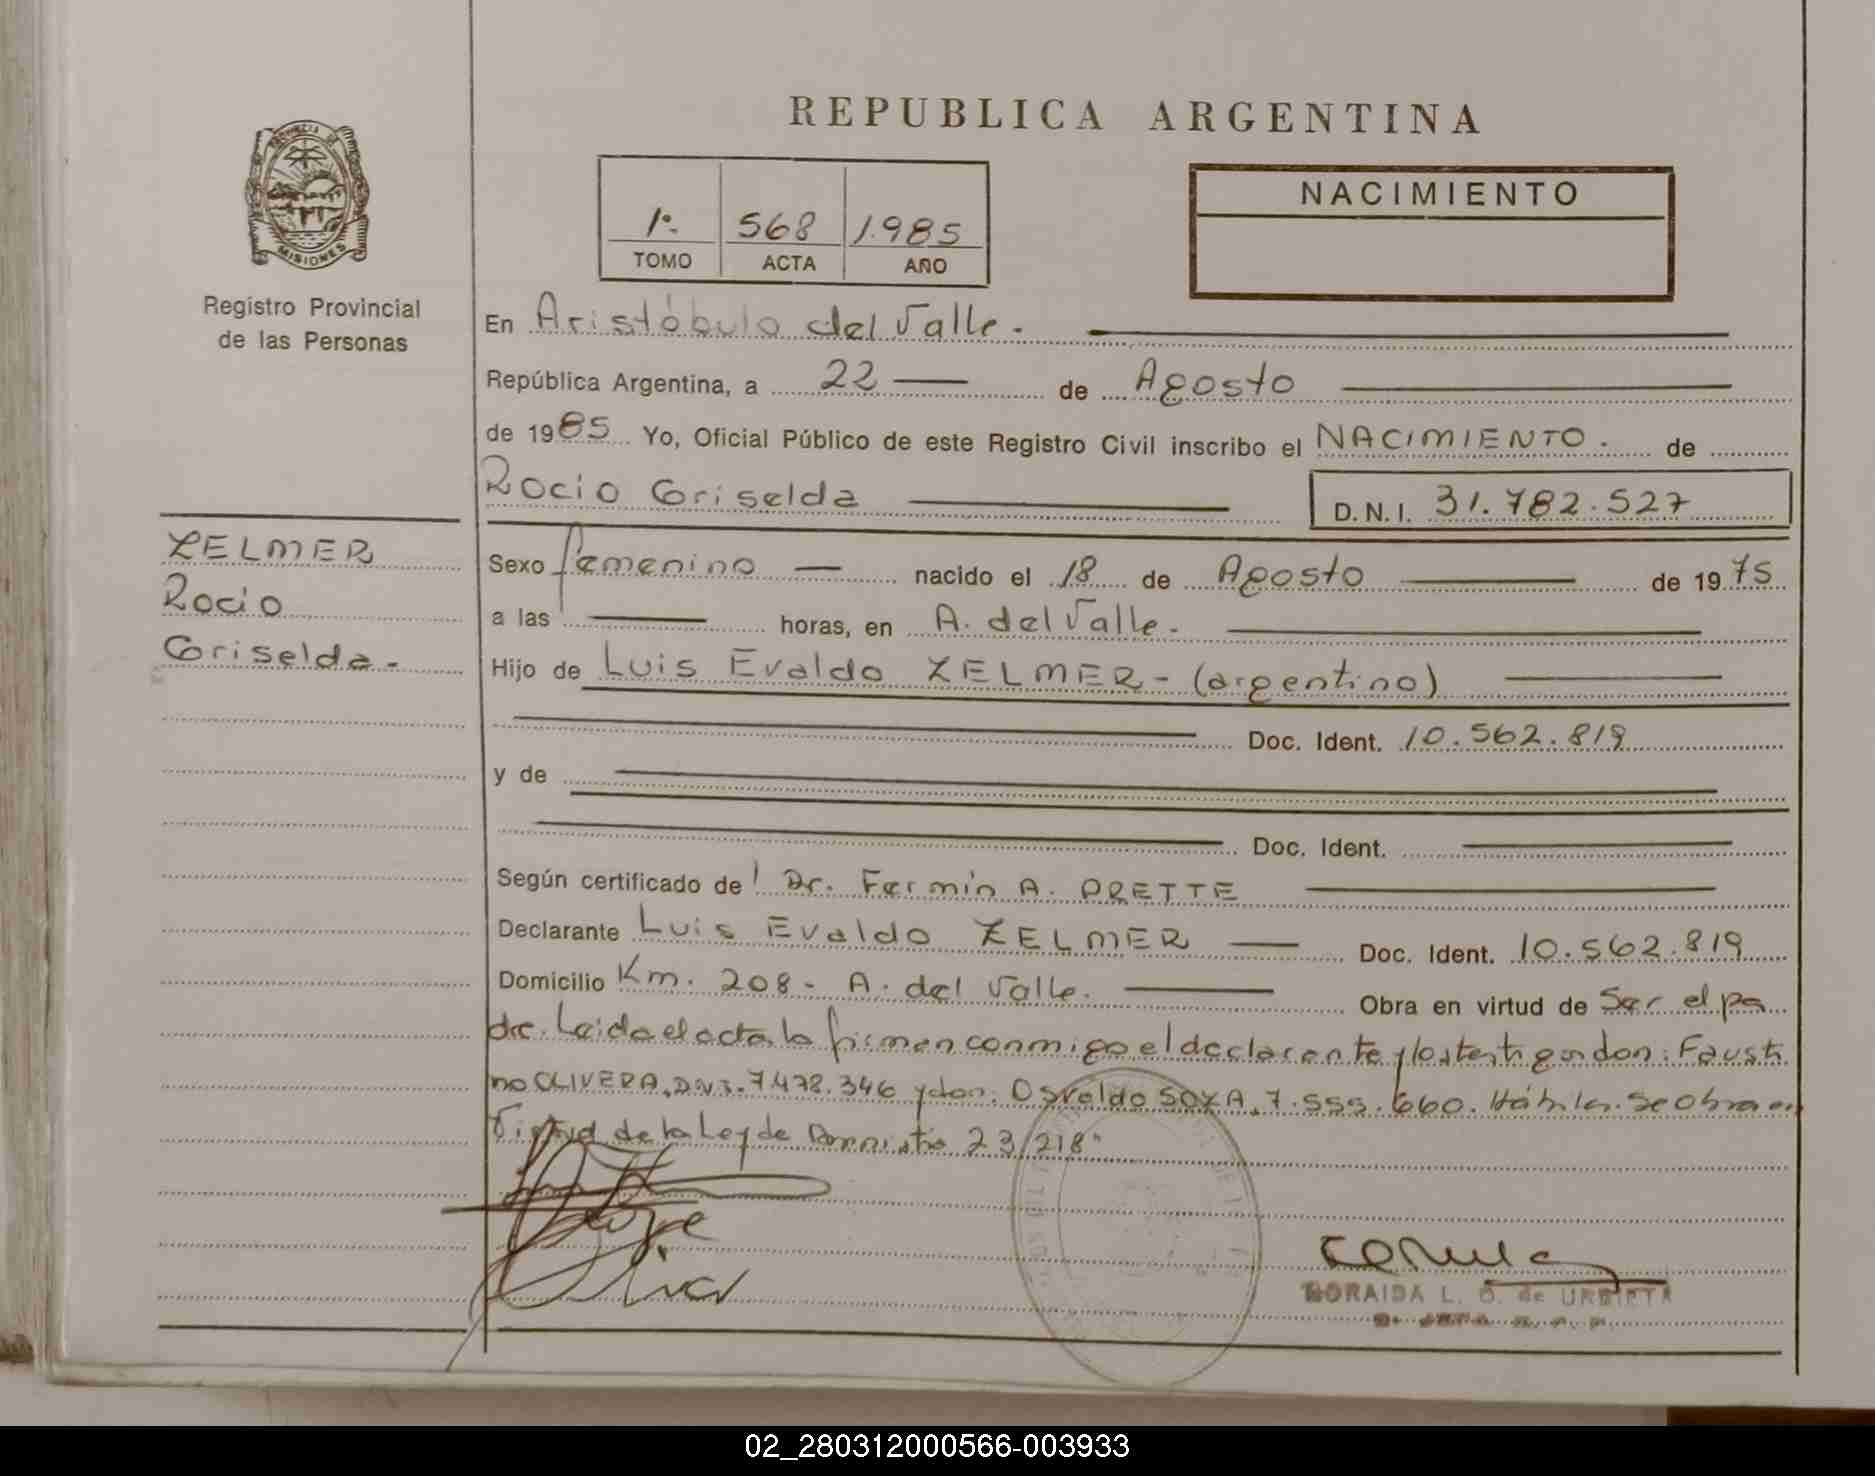 REPUBLICA ARGENTINA
PROVINCIA DE
MISIONES
Registro Provincial
de las Personas
1º 568 1.985
TOMO ACTA AÑO
NACIMIENTO
En Aristóbulo del Valle.
República Argentina, a 22 de Agosto
de 1985 Yo, Oficial Público de este Registro Civil inscribo el NACIMIENTO. de
Rocio Griselda D.N.I. 31.782.527
ZELMER
Rocio
Griselda.-
Sexo femenino nacido el 18 de Agosto de 1975
a las horas, en A. del Valle.
Hijo de Luis Evaldo ZELMER - (argentino)
Doc. Ident. 10.562.819
y de
Doc. Ident.
Según certificado de Dr. Fermín A. PRETTE
Declarante Luis Evaldo ZELMER Doc. Ident. 10.562.819
Domicilio Km. 208 - A. del Valle. Obra en virtud de Ser el pa
dre. Leida el acta la firman conmigo el declarante y los testigos don: Fausti
no OLIVERA, D.N.I. 7.472.346 y don: Osvaldo SOZA, 7.555.660. Hábiles. Se obra en
Virtud de la Ley de Amnistia 23/218"
ZORAIDA L. O. de URBIETA
02_280312000566-003933